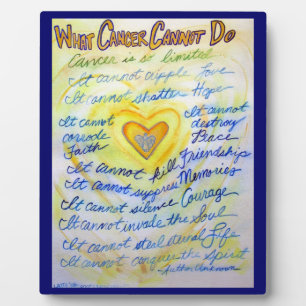 What Cancer Cannot Do
Cancer is so limited
It cannot cripple Love
It cannot shatter Hope
It cannot corrode Faith
It cannot destroy Peace
It cannot kill Friendship
It cannot suppress Memories
It cannot silence Courage
It cannot invade the Soul
It cannot steal eternal Life
It cannot conquer the Spirit
Author Unknown